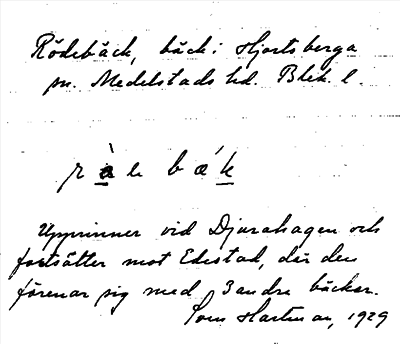 Rödebäck, bäck i Hjortsberga
sn. Medelstads hd. Blek. l.
r à e b ǽ k
Upprinner vid Djurahagen och
fortsätter mot Edestad, där den
förenar sig med 3 andra bäckar.
Sven Hartman, 1929